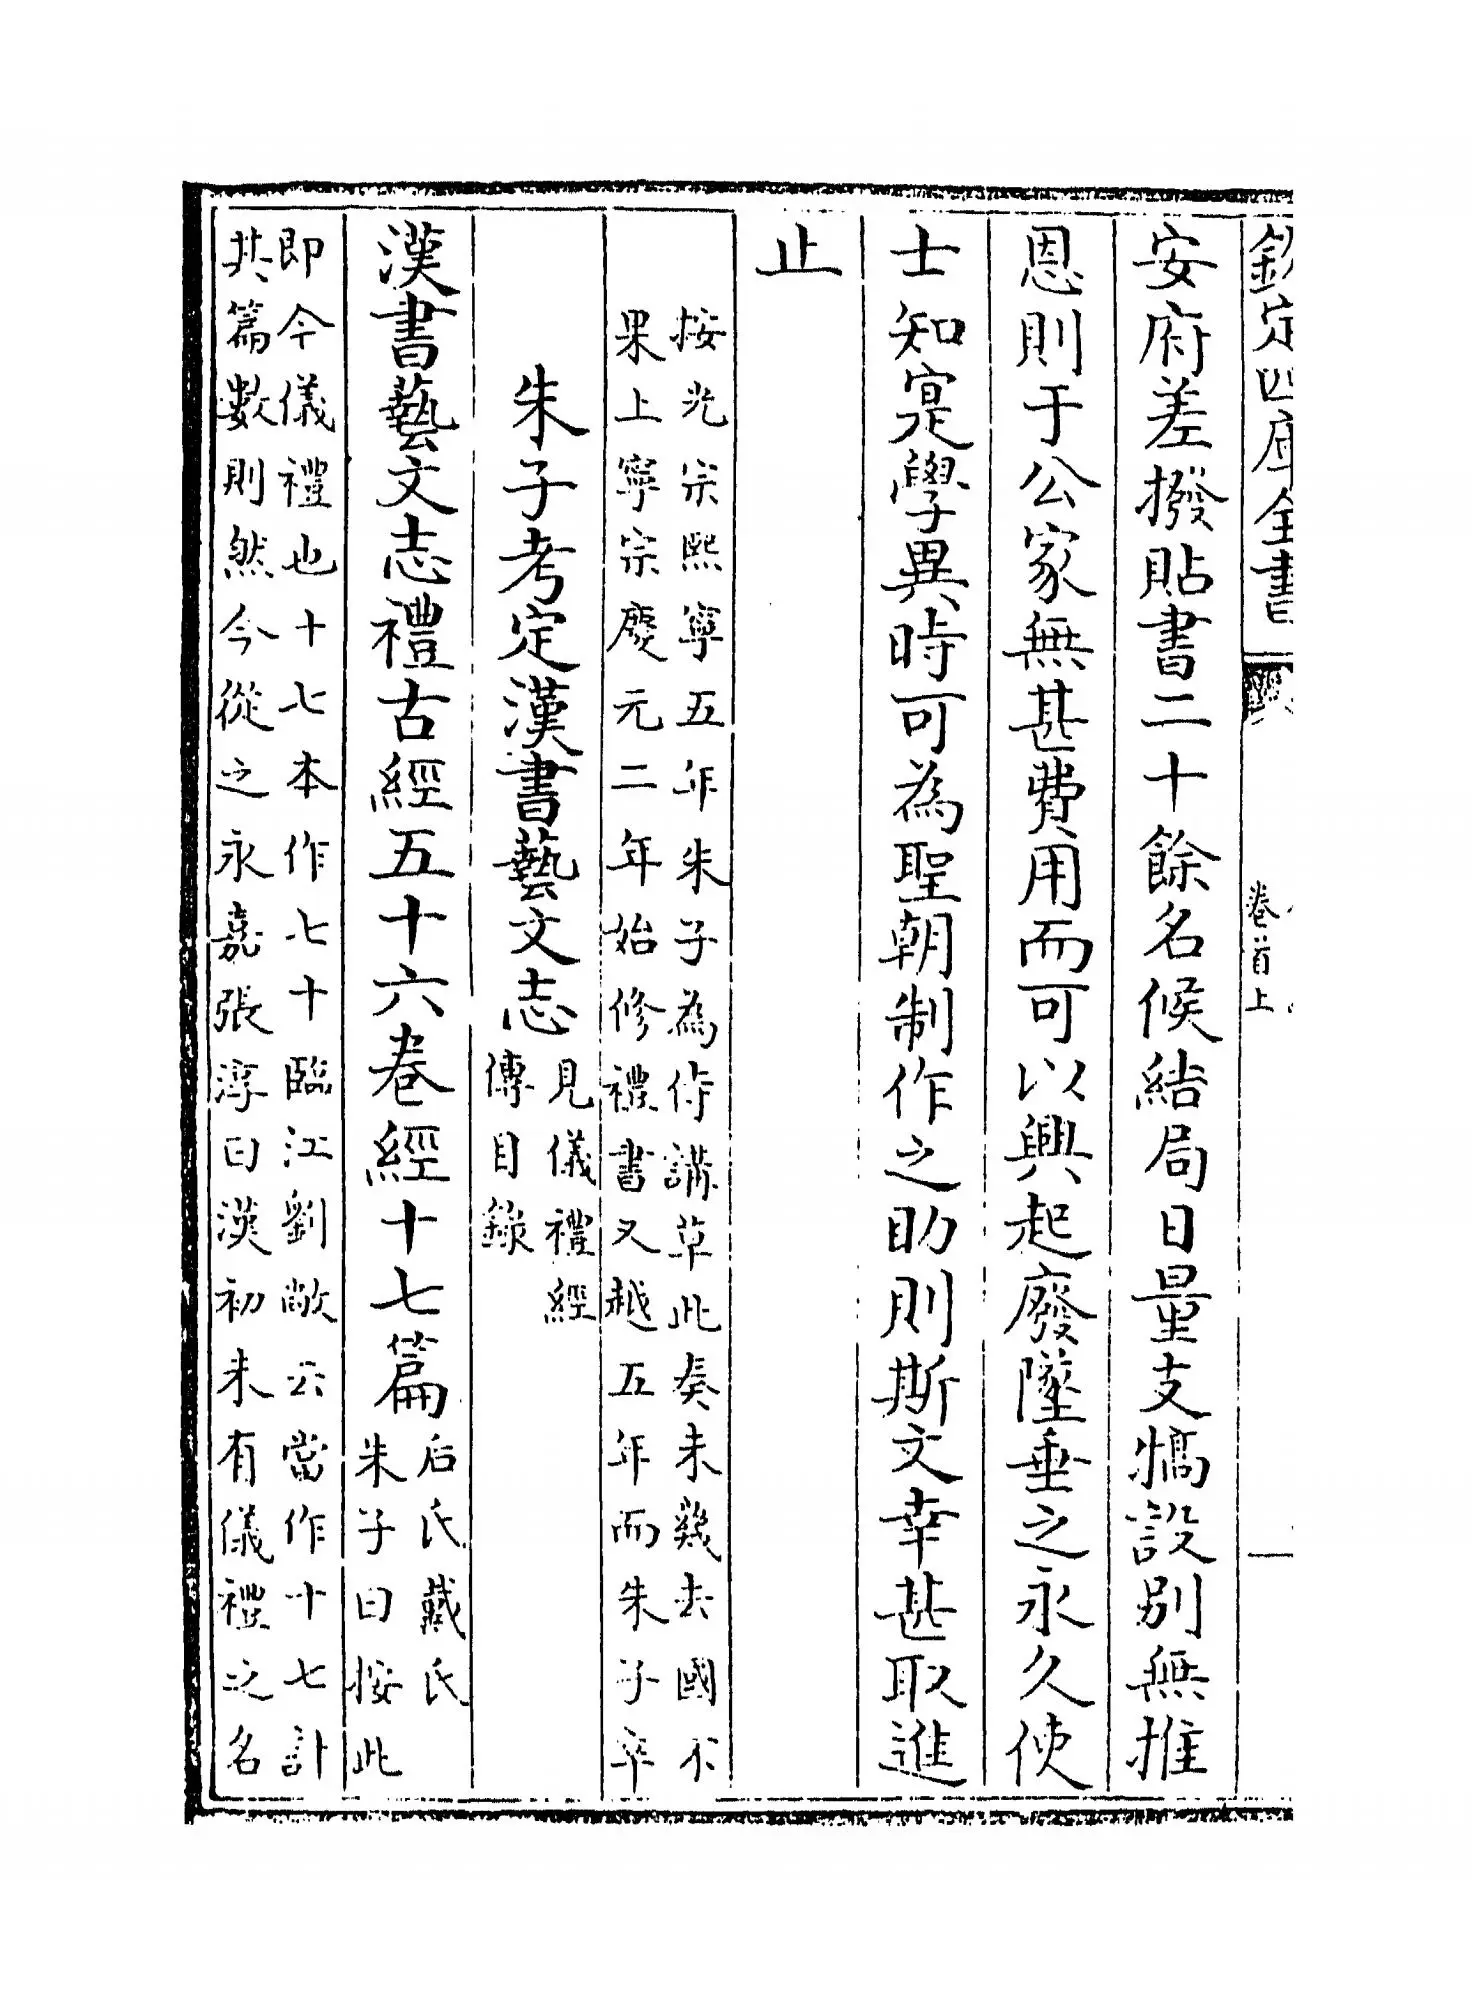 欽定四庫全書
卷首上
安府差撥貼書二十餘名候結局日量支犒設别無推
恩則于公家無甚費用而可以興起廢墜垂之永久使
士知寔學異時可為聖朝制作之助則斯文幸甚取進
止
按光宗熙寧五年朱子為侍講草此奏未幾去國不
果上寧宗慶元二年始修禮書又越五年而朱子卒
朱子考定漢書藝文志見儀禮經
傳目錄
漢書藝文志禮古經五十六卷經十七篇后氏戴氏
朱子曰按此
即今儀禮也十七本作七十臨江劉敞云當作十七計
其篇數則然今從之永嘉張淳曰漢初未有儀禮之名